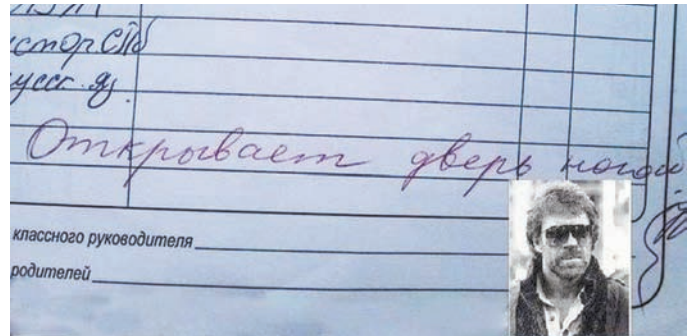 истор СПб
русск яз.
Открывает дверь ногой
классного руководителя
родителей